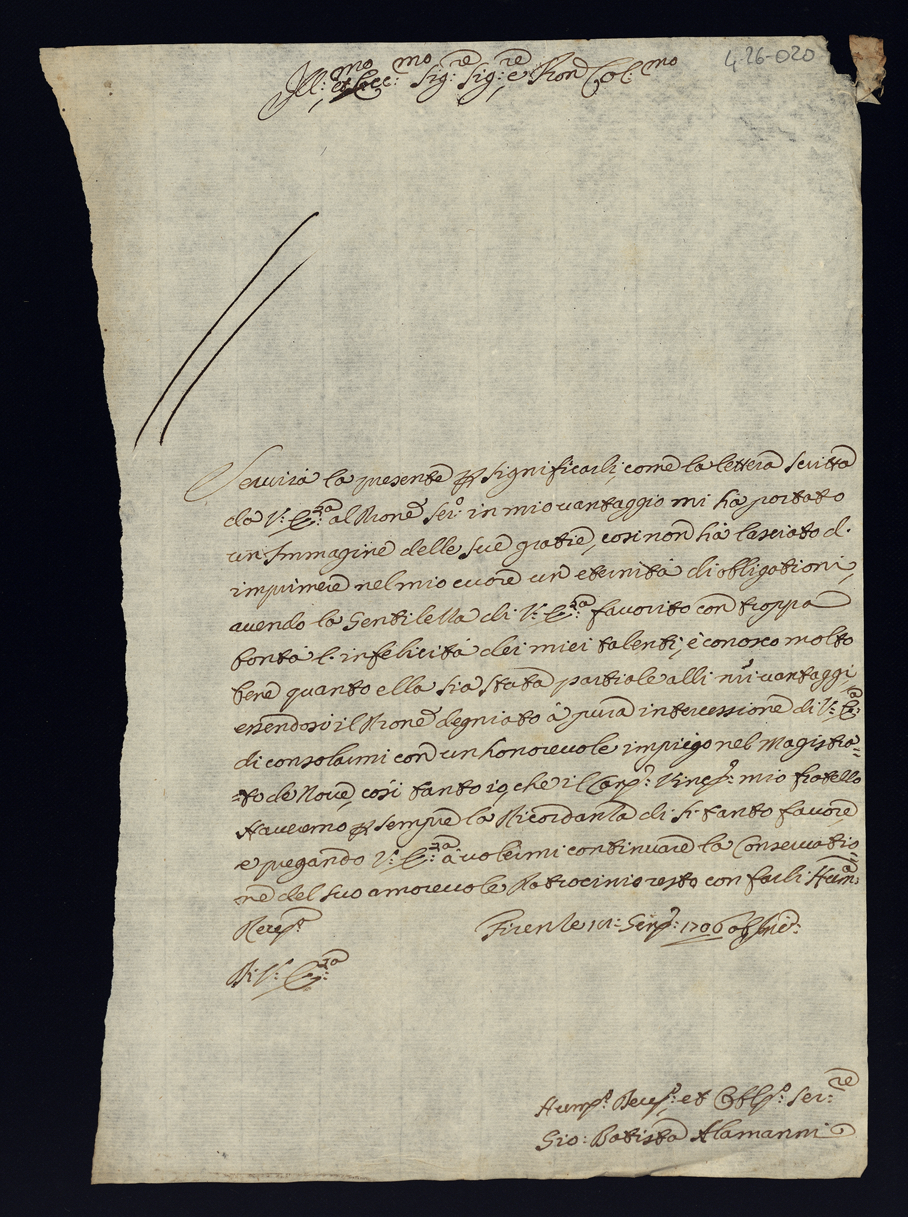 4-26-020
Ill:mo et Ecc:mo Sig:re Sig:re e Pron Col:mo
Servirà la presente p significarli, come la lettera scritta
da V: E:za al Prone Ser:o in mio vantaggio mi hà portato
un Immagine delle sue gratie, cosi non hà lasciato di
imprimere nel mio cuore un eternità di obligationi,
avendo la Gentilezza di V: E:za favorito con troppa
bontà l'infelicità dei miei talenti; e conosco molto
bene quanto ella sia stata partiale alli vantaggi,
essendosi il Prone degniato à pura intercessione di V: E:za
di consolarmi con un honorevole impiego nel Magistra=
=to de Nove, così tanto io, che il mio fratello
Haveremo p sempre la Ricordanza di si tanto favore
e pregando V: E:za à volermi continuare la Conservatio,
ne del suo amorevole Patrocinio resto con farli
Rever:
Firenze 1706
Di V: E:za
et Ser:re
Gio: Batista Alamanni